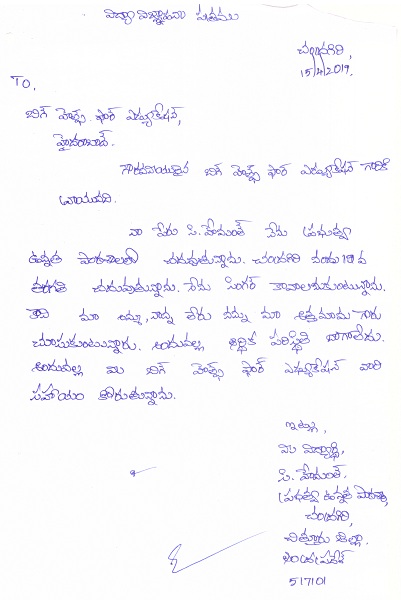 విద్యా విజ్ఞాపనా పత్రము
చంద్రగిరి,
15/4/2019.
TO,
బిగ్ హెల్ప్స్ ఫర్ ఎడ్యుకేషన్,
హైదరాబాద్.
గౌరవనీయులైన బిగ్ హెల్ప్స్ ఫర్ ఎడ్యుకేషన్ గారికి
వ్రాయునది.
నా పేరు సి.హేమంత్ నేను ప్రభుత్వ
ఉన్నత పాఠశాలలో చదువుతున్నాను. చంద్రగిరి నందు 10 వ
తరగతి చదువుతున్నాను. నేను సింగర్ కావాలనుకుంటున్నాను.
కాని మా అమ్మ, నాన్న లేరు నన్ను మా అత్తమామ గారు
చూసుకుంటున్నారు. అందువల్ల ఆర్థిక పరిస్థితి బాగాలేదు.
అందువల్ల మీ బిగ్ హెల్ప్స్ ఫర్ ఎడ్యుకేషన్ వారి
సహాయం కోరుతున్నాను.
ఇట్లు,
మీ విద్యార్థి,
సి. హేమంత్,
ప్రభుత్వ ఉన్నత పాఠశాల,
చంద్రగిరి,
చిత్తూరు జిల్లా.
ఆంధ్రప్రదేశ్
517101